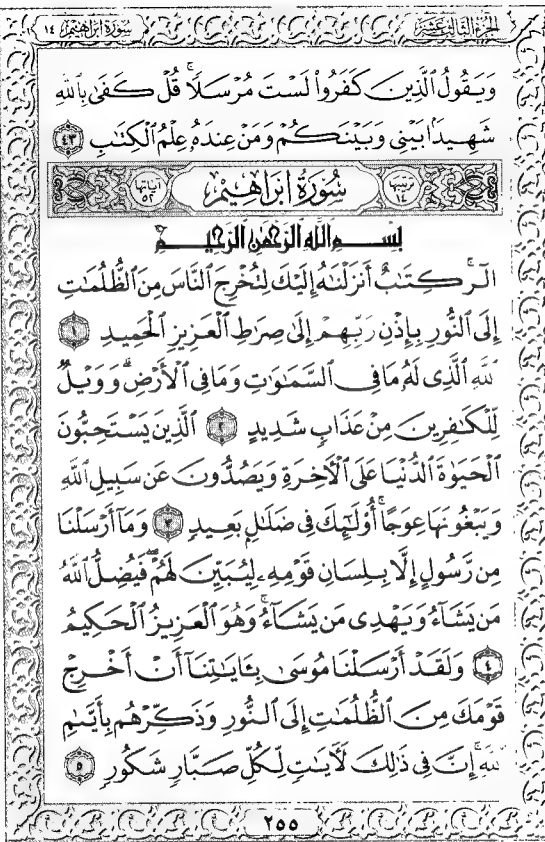 الجزء الثالث عشر
سورة إبراهيم ١٤
وَيَقُولُ ٱلَّذِينَ كَفَرُوا۟ لَسْتَ مُرْسَلًا ۚ قُلْ كَفَىٰ بِٱللَّهِ
شَهِيدًۢا بَيْنِى وَبَيْنَكُمْ وَمَنْ عِندَهُۥ عِلْمُ ٱلْكِتَـٰبِ ٤٣
ترتيبها ١٤ سُورَةُ إِبْرَاهِيمَ آياتها ٥٢
بِسْمِ ٱللَّهِ ٱلرَّحْمَـٰنِ ٱلرَّحِيمِ
الٓر ۚ كِتَـٰبٌ أَنزَلْنَـٰهُ إِلَيْكَ لِتُخْرِجَ ٱلنَّاسَ مِنَ ٱلظُّلُمَـٰتِ
إِلَى ٱلنُّورِ بِإِذْنِ رَبِّهِمْ إِلَىٰ صِرَٰطِ ٱلْعَزِيزِ ٱلْحَمِيدِ ١
ٱللَّهِ ٱلَّذِى لَهُۥ مَا فِى ٱلسَّمَـٰوَٰتِ وَمَا فِى ٱلْأَرْضِ ۗ وَوَيْلٌ
لِّلْكَـٰفِرِينَ مِنْ عَذَابٍ شَدِيدٍ ٢ ٱلَّذِينَ يَسْتَحِبُّونَ
ٱلْحَيَوٰةَ ٱلدُّنْيَا عَلَى ٱلْـَٔاخِرَةِ وَيَصُدُّونَ عَن سَبِيلِ ٱللَّهِ
وَيَبْغُونَهَا عِوَجًا ۚ أُو۟لَـٰٓئِكَ فِى ضَلَـٰلٍۭ بَعِيدٍ ٣ وَمَآ أَرْسَلْنَا
مِن رَّسُولٍ إِلَّا بِلِسَانِ قَوْمِهِۦ لِيُبَيِّنَ لَهُمْ ۖ فَيُضِلُّ ٱللَّهُ
مَن يَشَآءُ وَيَهْدِى مَن يَشَآءُ ۚ وَهُوَ ٱلْعَزِيزُ ٱلْحَكِيمُ
٤ وَلَقَدْ أَرْسَلْنَا مُوسَىٰ بِـَٔايَـٰتِنَآ أَنْ أَخْرِجْ
قَوْمَكَ مِنَ ٱلظُّلُمَـٰتِ إِلَى ٱلنُّورِ وَذَكِّرْهُم بِأَيَّىٰمِ
ٱللَّهِ ۚ إِنَّ فِى ذَٰلِكَ لَـَٔايَـٰتٍ لِّكُلِّ صَبَّارٍ شَكُورٍ ٥
٢٥٥